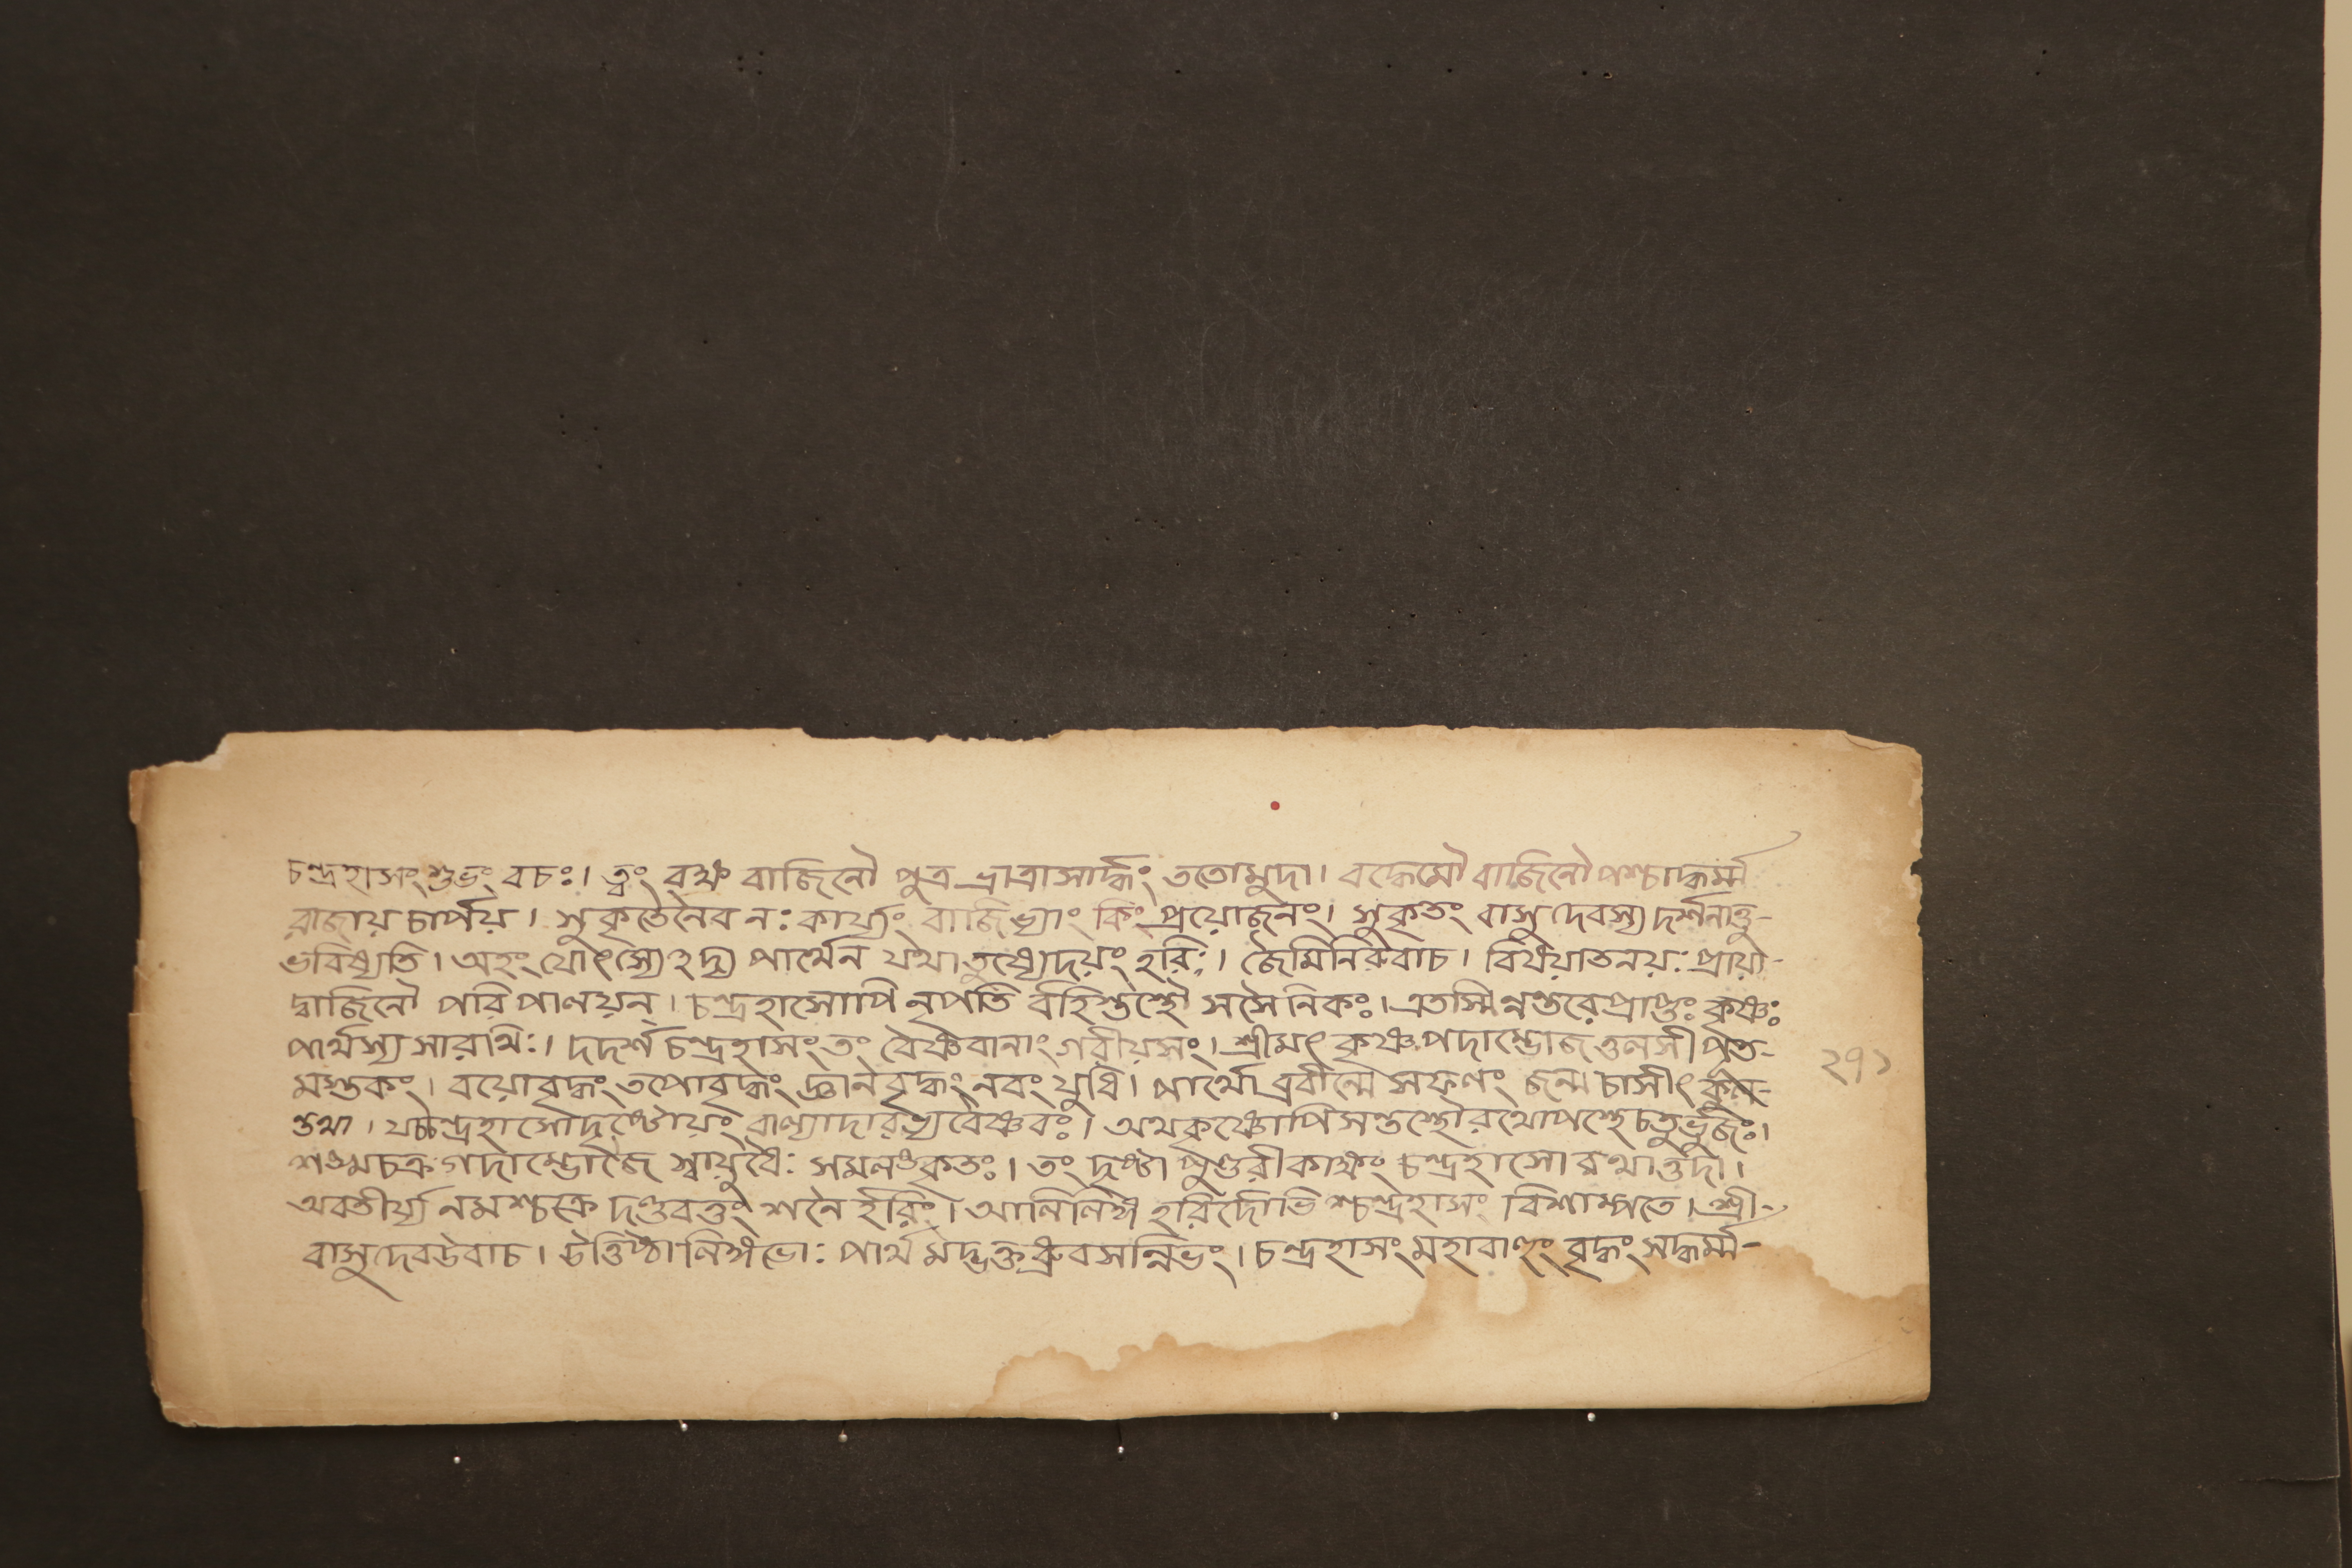 চন্দ্রহাসং শুভং বচঃ। ত্বং রক্ষ বাজিনৌ পুত্র ভ্রাত্রাসার্দ্ধং ততোমুদা। বদ্ধেমৌ বাজিনৌ পশ্চাদ্ধর্ম্ম
রাজায় চার্পয়। সুকৃতেনৈব নঃ কার্য্যং বাজিভ্যাং কিং প্রয়োজনং। সুকৃতং বাসুদেবস্য দর্শনাত্তু-
ভবিষ্যতি। অহং যোৎস্যেঽদ্য পার্থেন যথা তুষ্যেদয়ং হরিঃ। জৈমিনিরুবাচ। বিষয়াতনয়ঃ প্রায়া-
দ্বাজিনৌ পরিপালয়ন্। চন্দ্রহাসোপি নৃপতি র্বহিস্তস্থৌ সসৈনিকঃ। এতস্মিন্নন্তরে প্রাপ্তঃ কৃষ্ণঃ
পার্থস্য সারথিঃ। দদর্শ চন্দ্রহাসং তং বৈষ্ণবানাং গরীয়সং। শ্রীমৎ কৃষ্ণ পদাম্ভোজ তুলসী পত্র-
মস্তকং। বয়োবৃদ্ধং তপোবৃদ্ধং জ্ঞানবৃদ্ধং নবং যুধি। পার্থো ব্রবীন্মে সফলং জন্ম চাসীৎ কুল-
ন্তথা। যচ্চন্দ্রহাসোদৃষ্টোয়ং বাল্যাদারভ্য বৈষ্ণবঃ। অথ কৃষ্ণোপি সন্তস্থৌ রথোপস্থে চতুর্ভুজঃ।
শঙ্খচক্র গদাম্ভোজৈ স্বায়ুধৈঃ সমলঙ্কৃতঃ। তং দৃষ্ট্বা পুণ্ডরীকাক্ষং চন্দ্রহাসো রথাত্তদা।
অবতীর্য্য নমশ্চক্রে দণ্ডবত্তং শনৈ র্হরিং। আলিলিঙ্গ হরির্দোর্ভি শ্চন্দ্রহাসং বিশাম্পতে। শ্রী-
বাসুদেব উবাচ। উত্তিষ্ঠা লিঙ্গ ভোঃ পার্থ মদ্ভক্ত ধ্রুবসন্নিভং। চন্দ্রহাসং মহাবাহুং বৃদ্ধং সদ্ধর্ম্ম-
২৭১